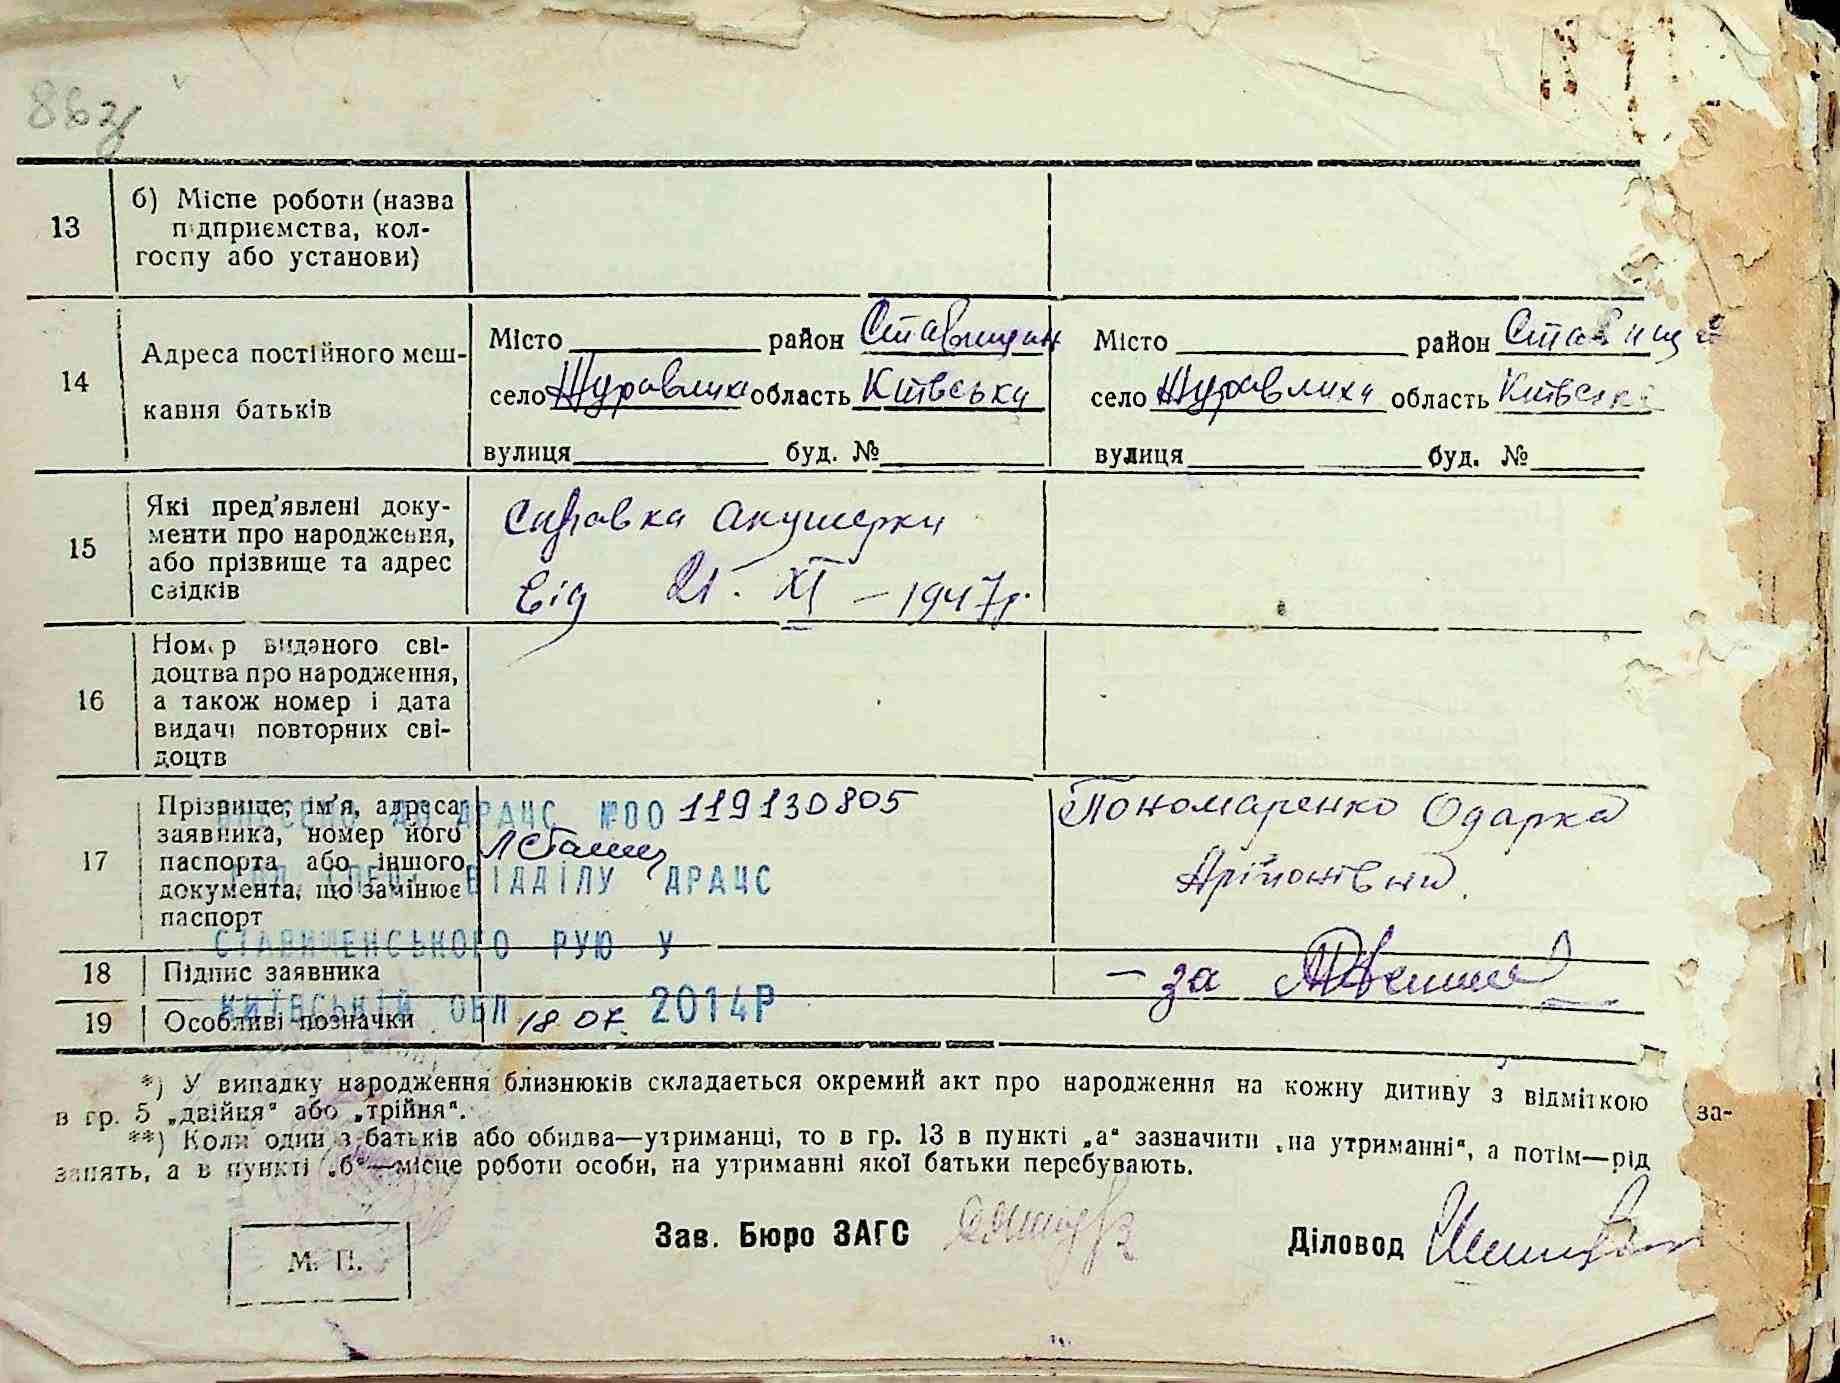 86
13
б) Місце роботи (назва
підприємства, кол-
госпу або установи)
14
Адреса постійного меш-
кання батьків
Місто район Ставищан
село Журавлиха область Київська
вулиця буд. №
Місто район Ставище
село Журавлиха область Київська
вулиця буд. №
15
Які пред'явлені доку-
менти про народження,
або прізвище та адрес
свідків
Справка акушерки
від 21. XI – 1947 р.
16
Номер виданого сві-
доцтва про народження,
а також номер і дата
видачі повторних сві-
доцтв
17
Прізвище, ім'я, адреса
заявника, номер його
паспорта або іншого
документа, що замінює
паспорт
ВНЕСЕНО ДО ДРАЦС №00 119130805
ВІДДІЛУ ДРАЦС
СТАВИЩЕНСЬКОГО РУЮ У
КИЇВСЬКІЙ ОБЛ 18 07. 2014Р
Пономаренко Одарка
18
Підпис заявника
– за
19
Особливі позначки
*) У випадку народження близнюків складається окремий акт про народження на кожну дитину з відміткою
в гр. 5 „двійня" або „трійня".
**) Коли один з батьків або обидва—утриманці, то в гр. 13 в пункті „а" зазначити „на утриманні", а потім—рід за-
занять, а в пункті „б"—місце роботи особи, на утриманні якої батьки перебувають.
М. П.
Зав. Бюро ЗАГС
Діловод